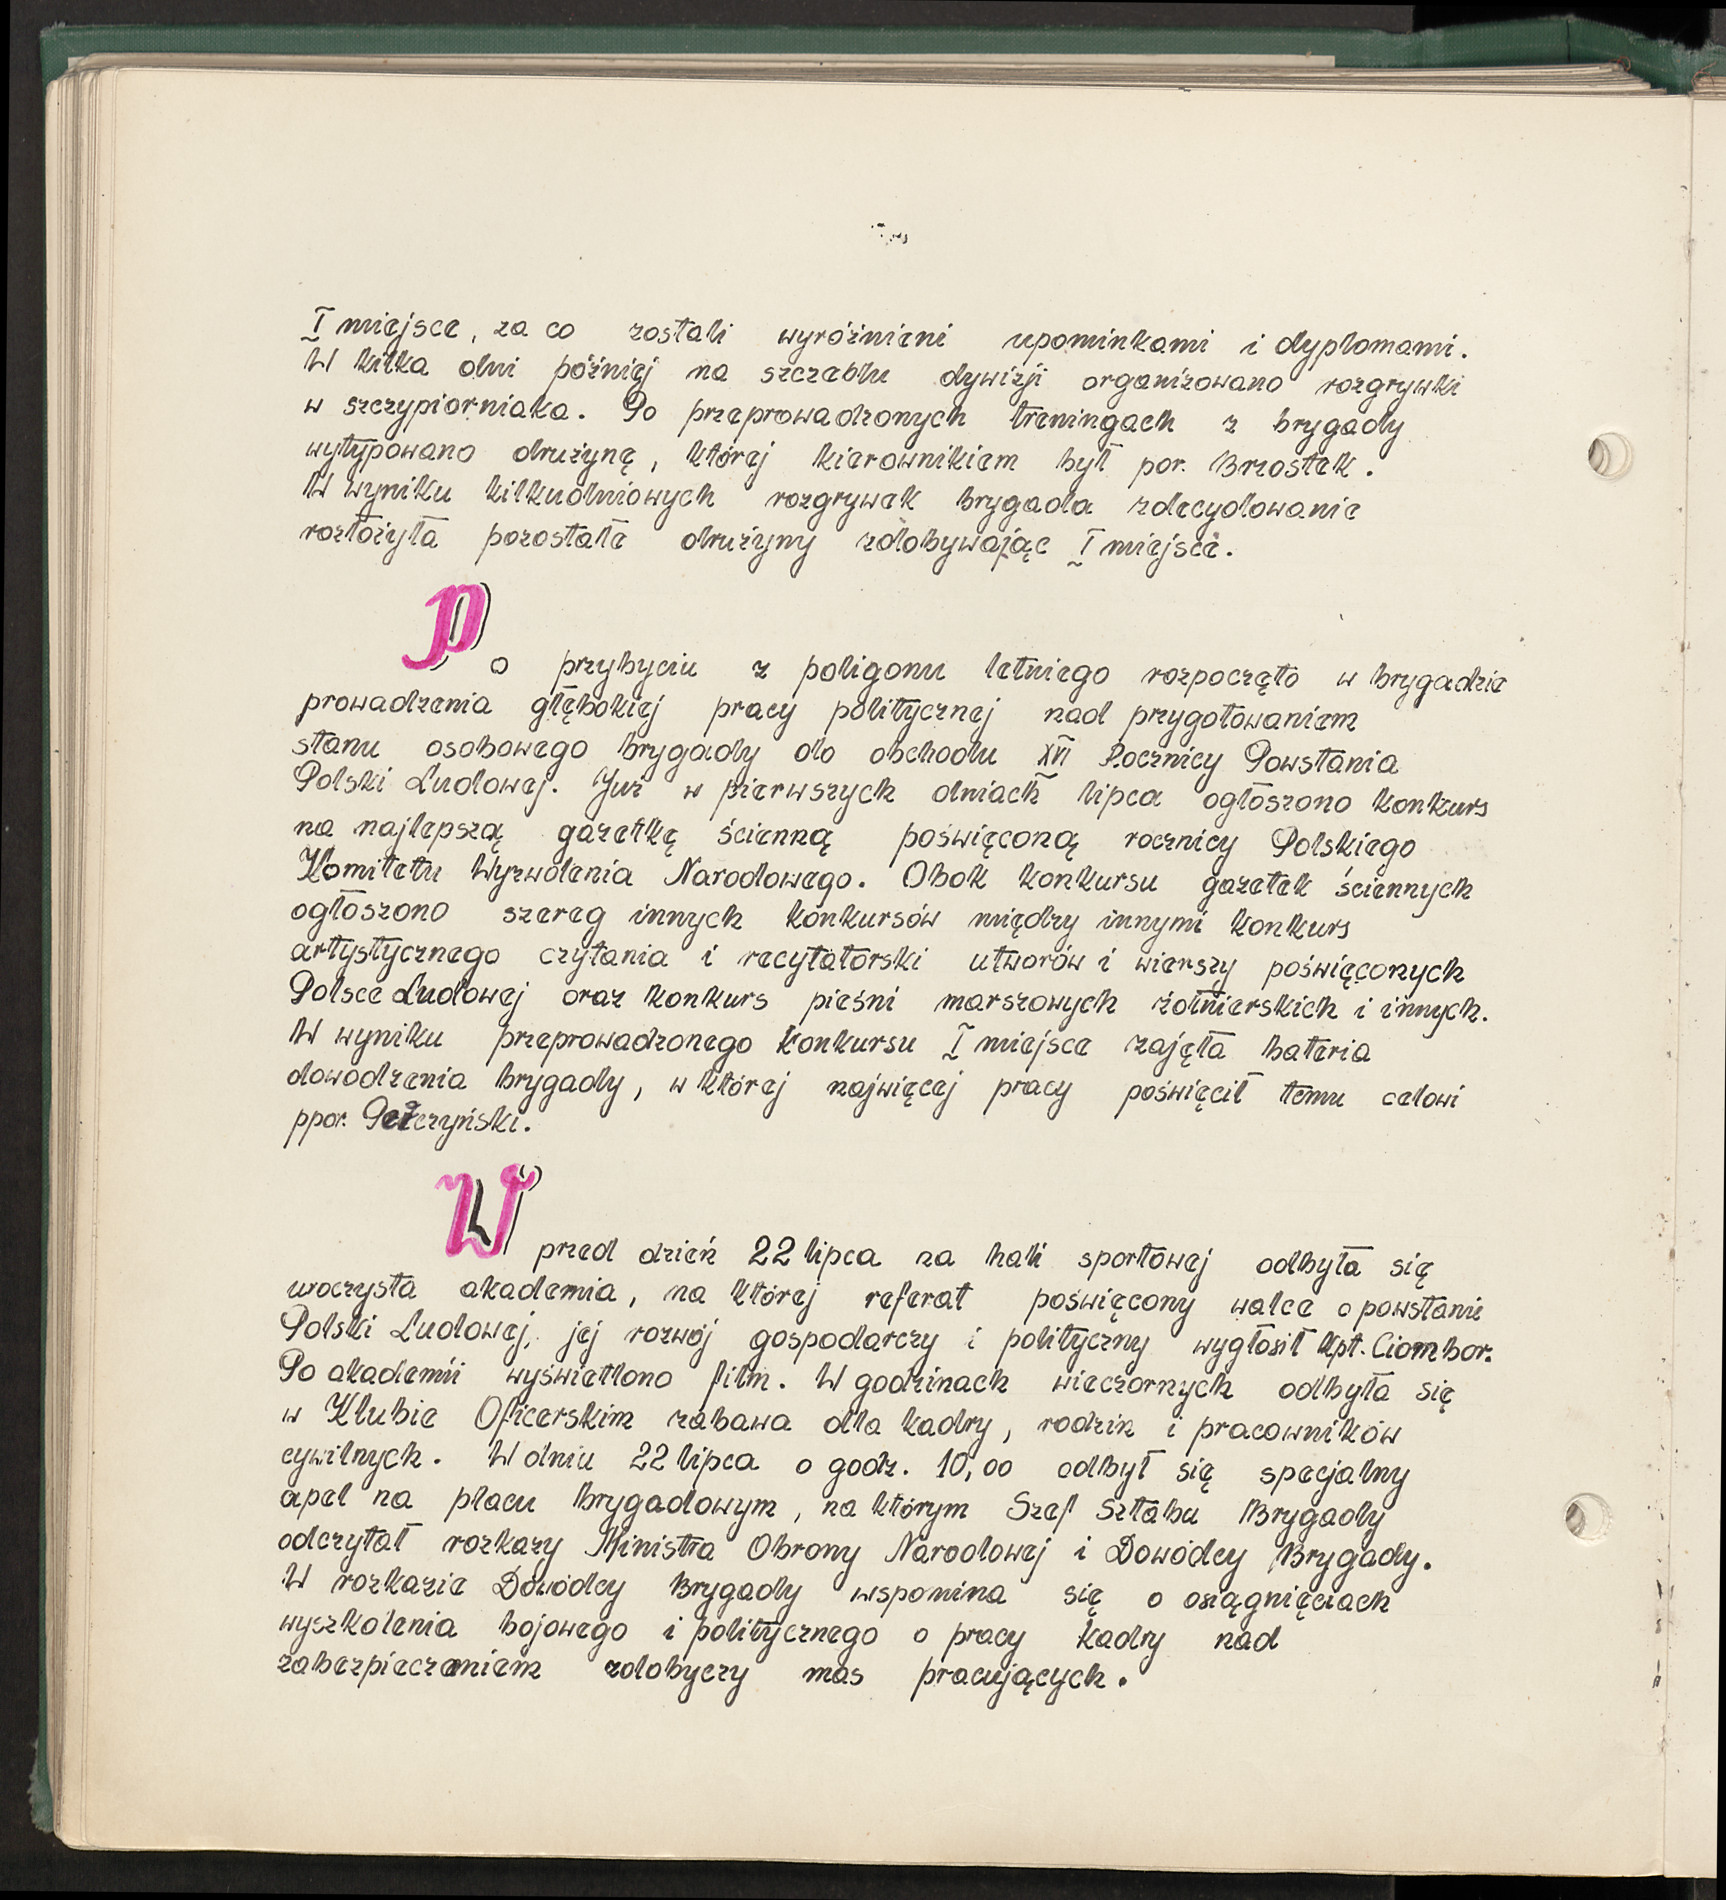 I miejsce, za co zostali wyróżnieni upominkami i dyplomami.
W kilka dni później na szczeblu dywizji organizowano rozgrywki
w szczypiorniaka. Po przeprowadzonych treningach z brygady
wytypowano drużynę, której kierownikiem był por. Brzostek.
W wyniku kilkudniowych rozgrywek brygada zdecydowanie
rozłożyła pozostałe drużyny zdobywając I miejsce.
Po przybyciu z poligonu letniego rozpoczęto w brygadzie
prowadzenia głębokiej pracy politycznej nad przygotowaniem
stanu osobowego brygady do obchodu XVI Rocznicy Powstania
Polski Ludowej. Już w pierwszych dniach lipca ogłoszono konkurs
na najlepszą gazetkę ścienną poświęconą rocznicy Polskiego
Komitetu Wyzwolenia Narodowego. Obok konkursu gazetek ściennych
ogłoszono szereg innych konkursów między innymi konkurs
artystycznego czytania i recytatorski utworów i wierszy poświęconych
Polsce Ludowej oraz konkurs pieśni marszowych żołnierskich i innych.
W wyniku przeprowadzonego konkursu I miejsce zajęła bateria
dowodzenia brygady, w której najwięcej pracy poświęcił temu celowi
ppor.
W przed dzień 22 lipca na hali sportowej odbyła się
uroczysta akademia, na której referat poświęcony walce o powstanie
Polski Ludowej, jej rozwój gospodarczy i polityczny wygłosił kpt. Ciombor.
Po akademii wyświetlono film. W godzinach wieczornych odbyła się
w Klubie Oficerskim zabawa dla kadry, rodzin i pracowników
cywilnych. W dniu 22 lipca o godz. 10,00 odbył się specjalny
apel na placu brygadowym, na którym Szef Sztabu Brygady
odczytał rozkazy Ministra Obrony Narodowej i Dowódcy Brygady.
W rozkazie Dowódcy Brygady wspomina się o osiągnięciach
wyszkolenia bojowego i politycznego o pracy kadry nad
zabezpieczeniem zdobyczy mas pracujących.